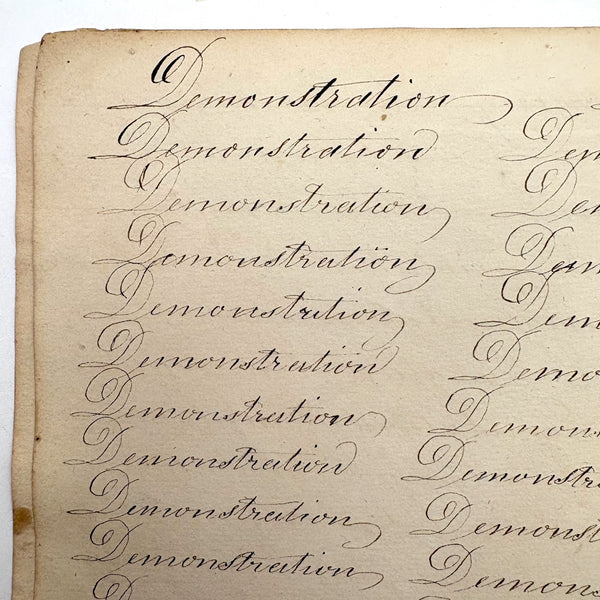 Demonstration
Demonstration
Demonstration
Demonstration
Demonstration
Demonstration
Demonstration
Demonstration
Demonstration
Demonstration
D
Dem
Dem
Dem
Dem
Demo
Demons
Demonstr
Demonst
Demons